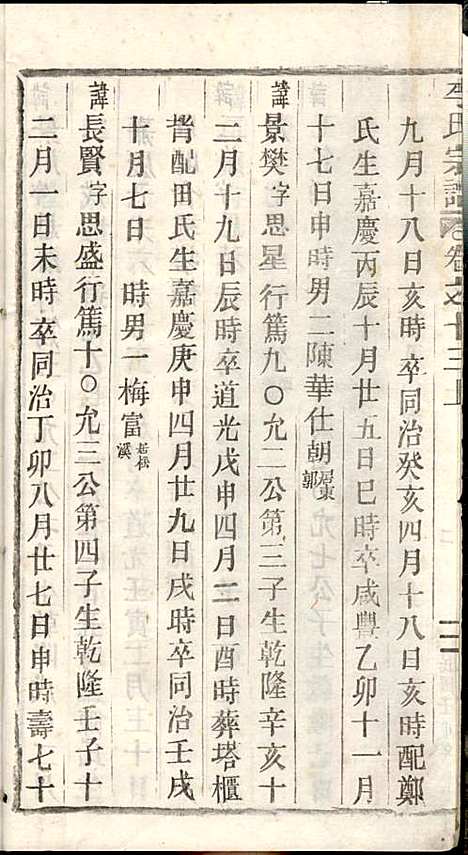 李氏宗譜 卷之十三上
九月十八日亥時卒同治癸亥四月十八日亥時配鄭
氏生嘉慶丙辰十月廿五日巳時卒咸豐乙卯十一月
十七日申時男二陳華仕朝居東郭
諱景樊字思星行篤九〇允二公第三子生乾隆辛亥十
二月十九日辰時卒道光戊申四月二日酉時葬塔櫃
背配田氏生嘉慶庚申四月廿九日戌時卒同治壬戌
十月七日 時男一梅富居松溪
諱長賢字思盛行篤十〇允三公第四子生乾隆壬子十
二月一日未時卒同治丁卯八月廿七日申時壽七十